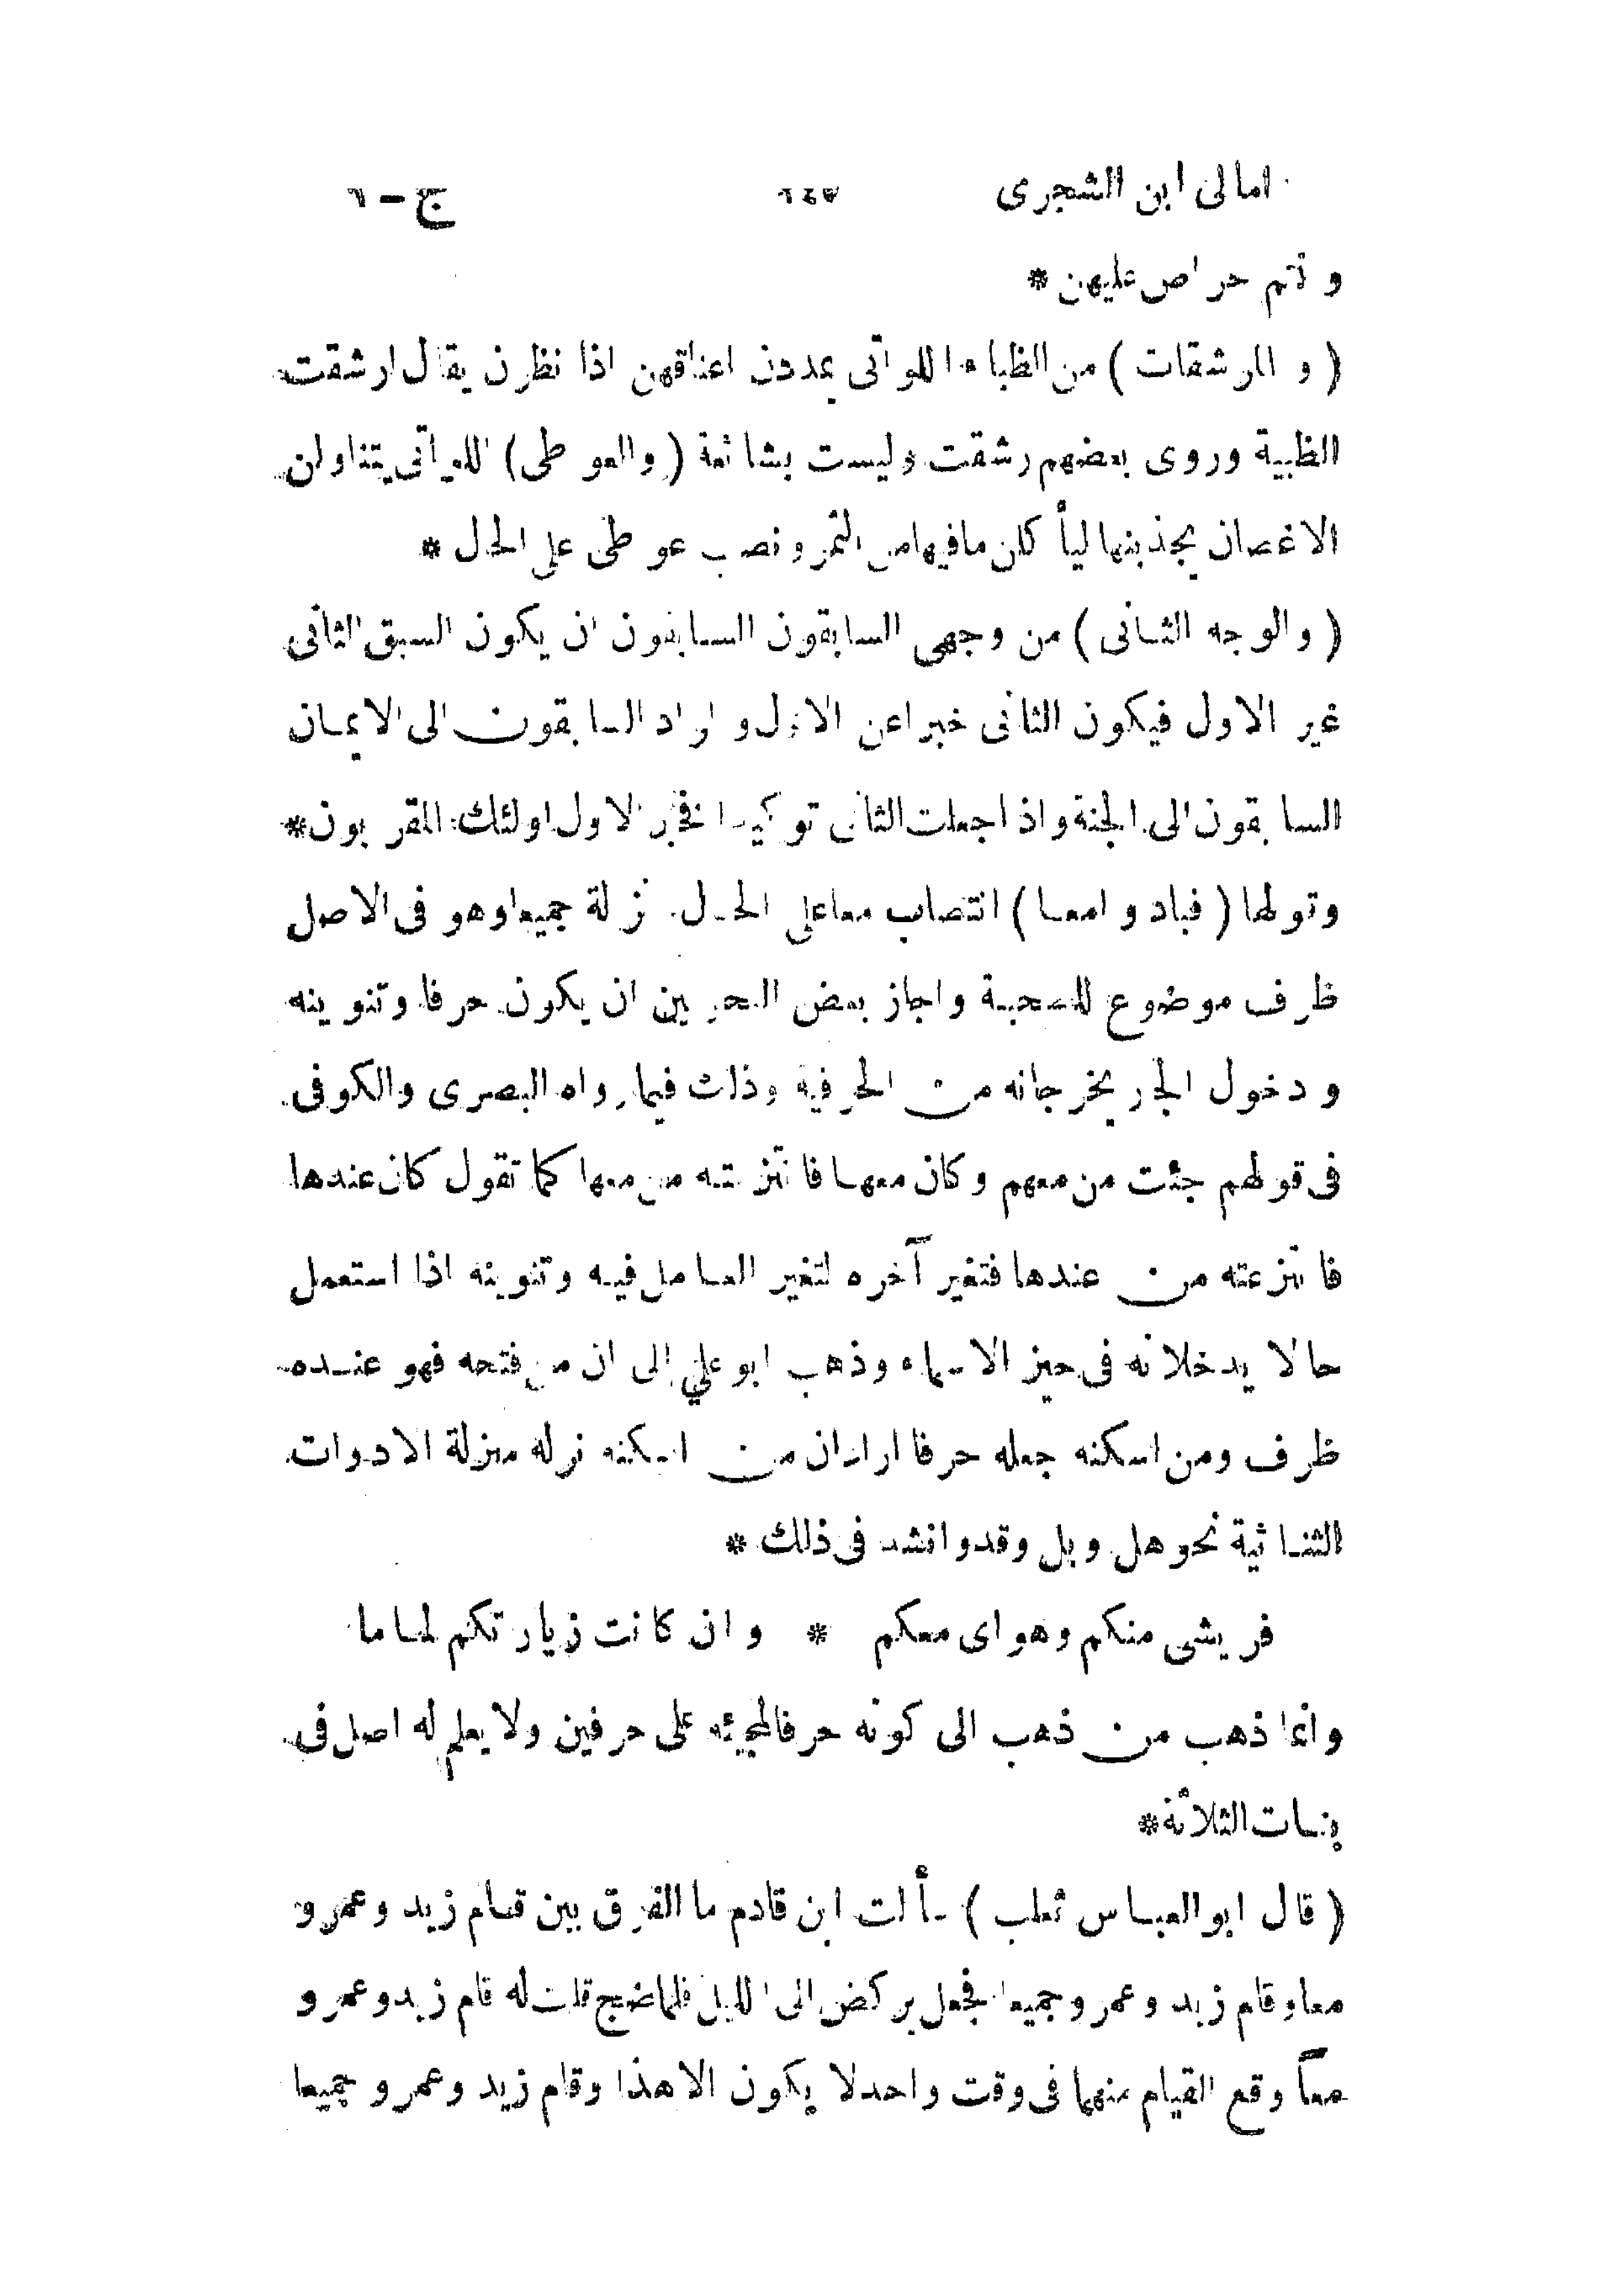 امالى ابن الشجرى ٢٤٥ ج – ١
وانتم حراص عليهن *
( والمرشقات ) من الظباء اللواتى يمددن اعناقهن اذا نظرن يقال ارشقت
الظبية وروى بعضهم رشقت وليست بشائعة ( والعوطى ) اللواتى يتناولن
الاغصان يجذبنها ليأكلن مافيها من الثمر ونصب عوطى على الحال *
( والوجه الثانى ) من وجهى السابقون السابقون ان يكون السبق الثانى
غير الاول فيكون الثانى خبرا عن الاول واراد السابقون الى الايمان
السابقون الى الجنة واذا جعلت الثانى توكيدا فخبر الاول اولئك المقربون *
وقولها ( فبادوا معا ) انتصاب معا على الحال نزلة جميعا وهو فى الاصل
ظرف موضوع للصحبة واجاز بعض النحويين ان يكون حرفا وتنوينه
ودخول الجار يخرجانه من الحرفية وذلك فيما رواه البصرى والكوفى
فى قولهم جئت من معهم وكان معها فانتزعته من معها كما تقول كان عندها
فانتزعته من عندها فتغير آخره لتغير العامل فيه وتنوينه اذا استعمل
حالا يدخلانه فى حيز الاسماء وذهب ابو على الى ان من فتحه فهو عنده
ظرف ومن اسكنه جعله حرفا اراد ان من اسكنه نزله منزلة الادوات
الثنائية نحو هل وبل وقد وانشد فى ذلك *
فريشى منكم وهواى معكم * وان كانت زيارتكم لماما
وانما ذهب من ذهب الى كونه حرفا لمجيئه على حرفين ولا يعلم له اصل فى
بنات الثلاثة *
( قال ابو العباس ثعلب ) سألت ابن قادم ما الفرق بين قام زيد وعمرو
معا وقام زيد وعمرو جميعا فجعل يركض الى الليل فلما ضج قلت له قام زيد وعمرو
معاً وقع القيام منهما فى وقت واحد لا يكون الا هذا وقام زيد وعمرو جميعا